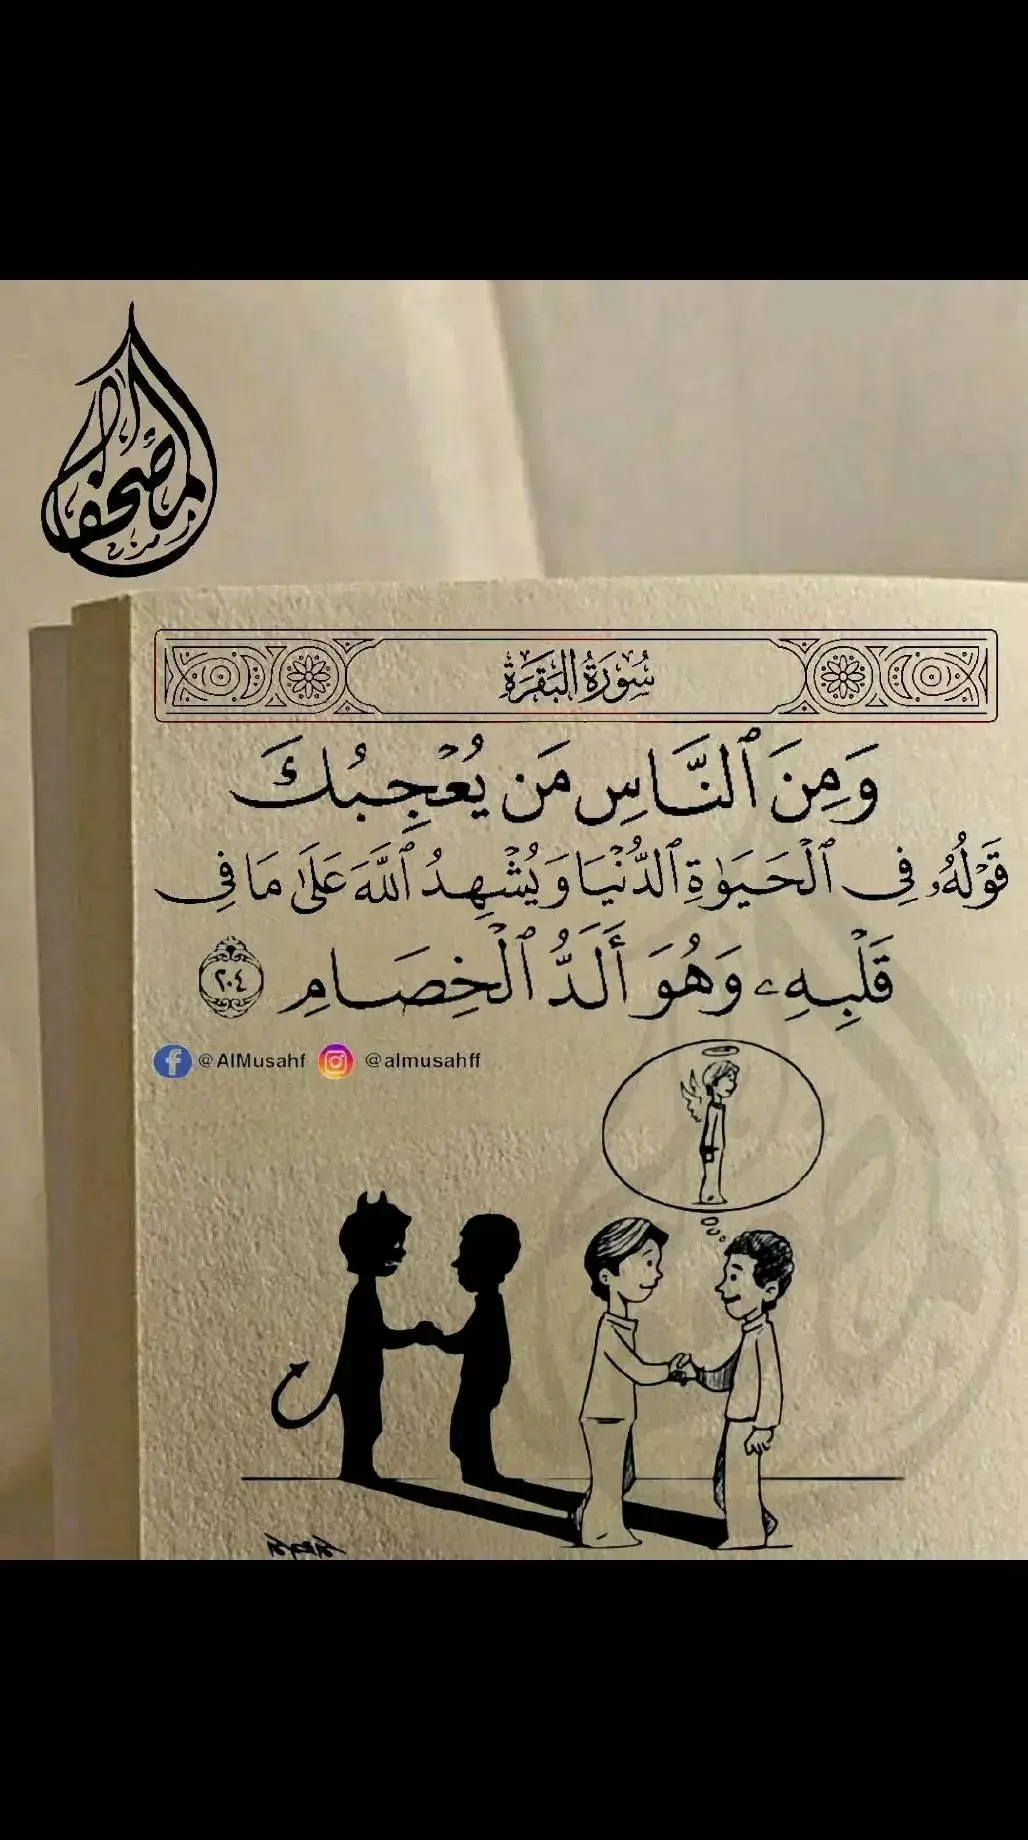 المصحف
سُورَةُ البَقَرَةِ
وَمِنَ ٱلنَّاسِ مَن يُعْجِبُكَ
قَوْلُهُۥ فِى ٱلْحَيَوٰةِ ٱلدُّنْيَا وَيُشْهِدُ ٱللَّهَ عَلَىٰ مَا فِى
قَلْبِهِۦ وَهُوَ أَلَدُّ ٱلْخِصَامِ ٢٠٤
@AlMusahf @almusahff